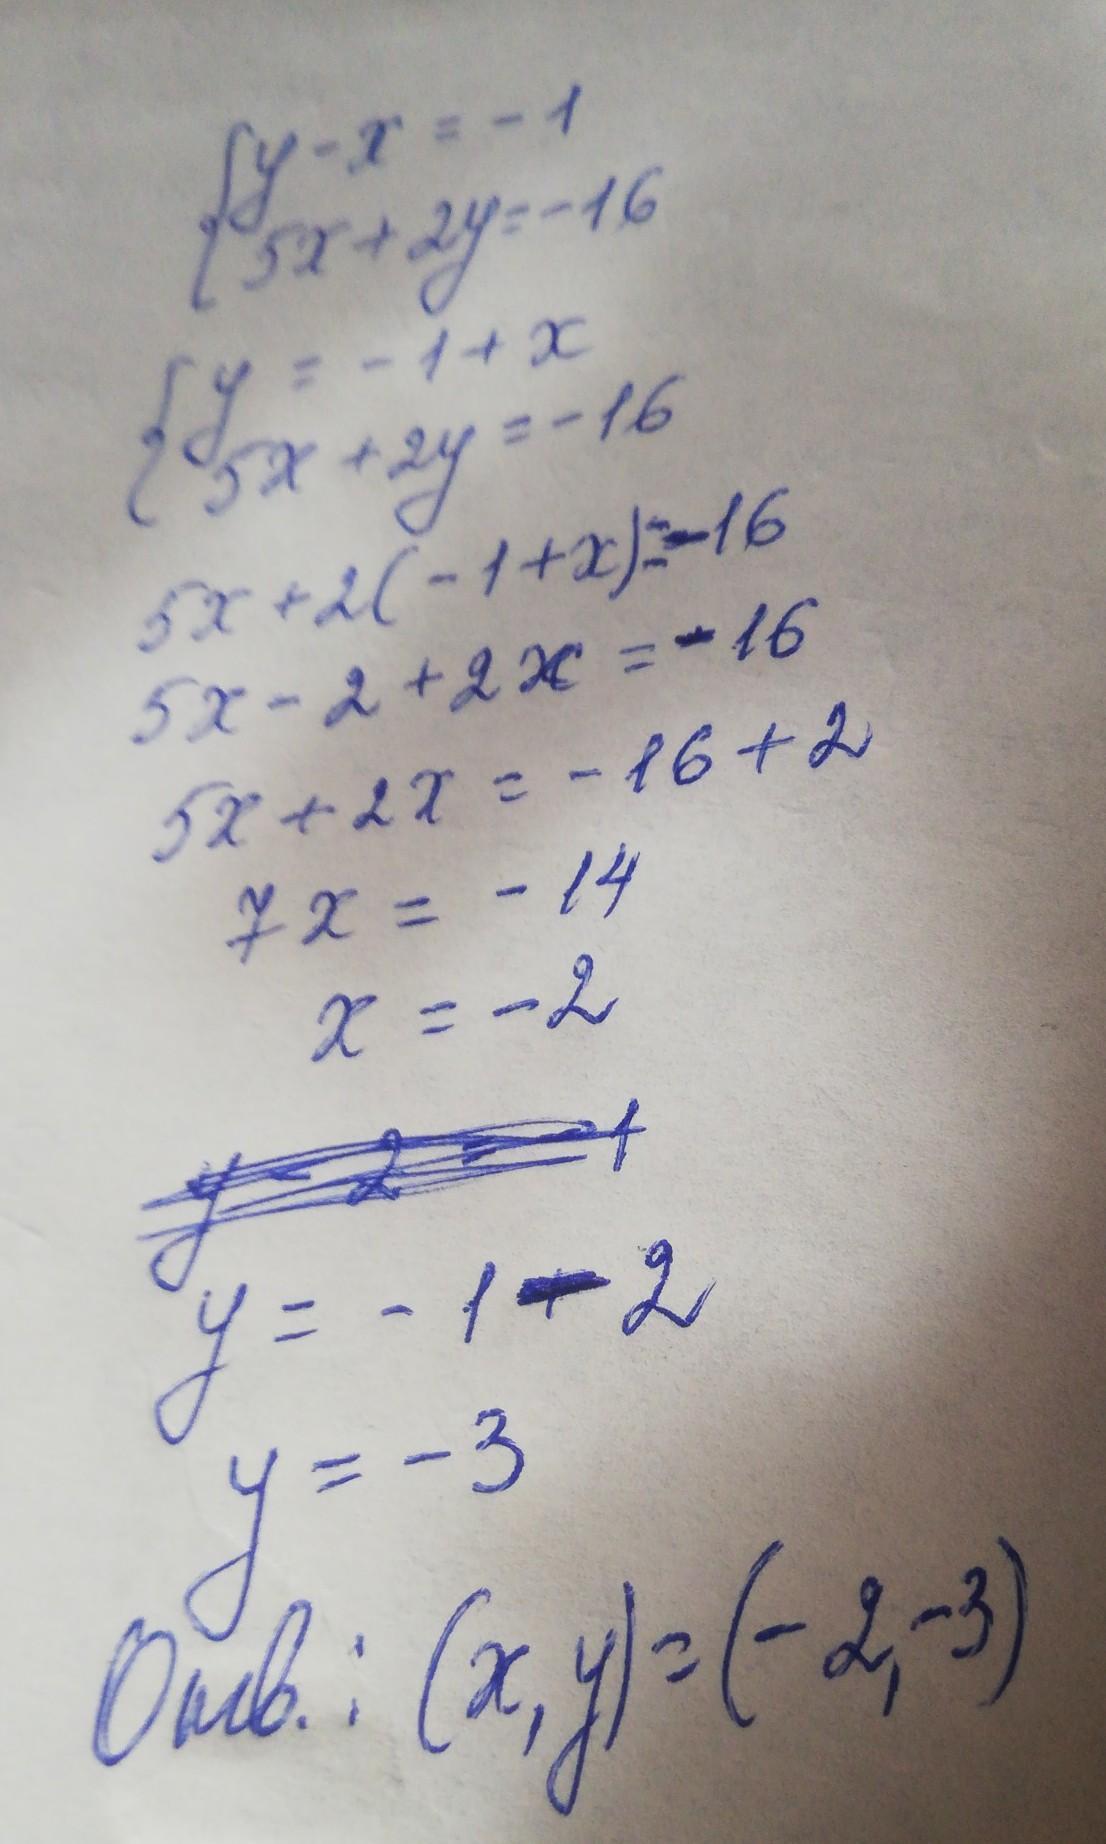 {y-x=-1
5x+2y=-16
{y=-1+x
5x+2y=-16
5x+2(-1+x)=-16
5x-2+2x=-16
5x+2x=-16+2
7x=-14
x=-2
y=-1-2
y=-3
Отв.: (x,y)=(-2,-3)